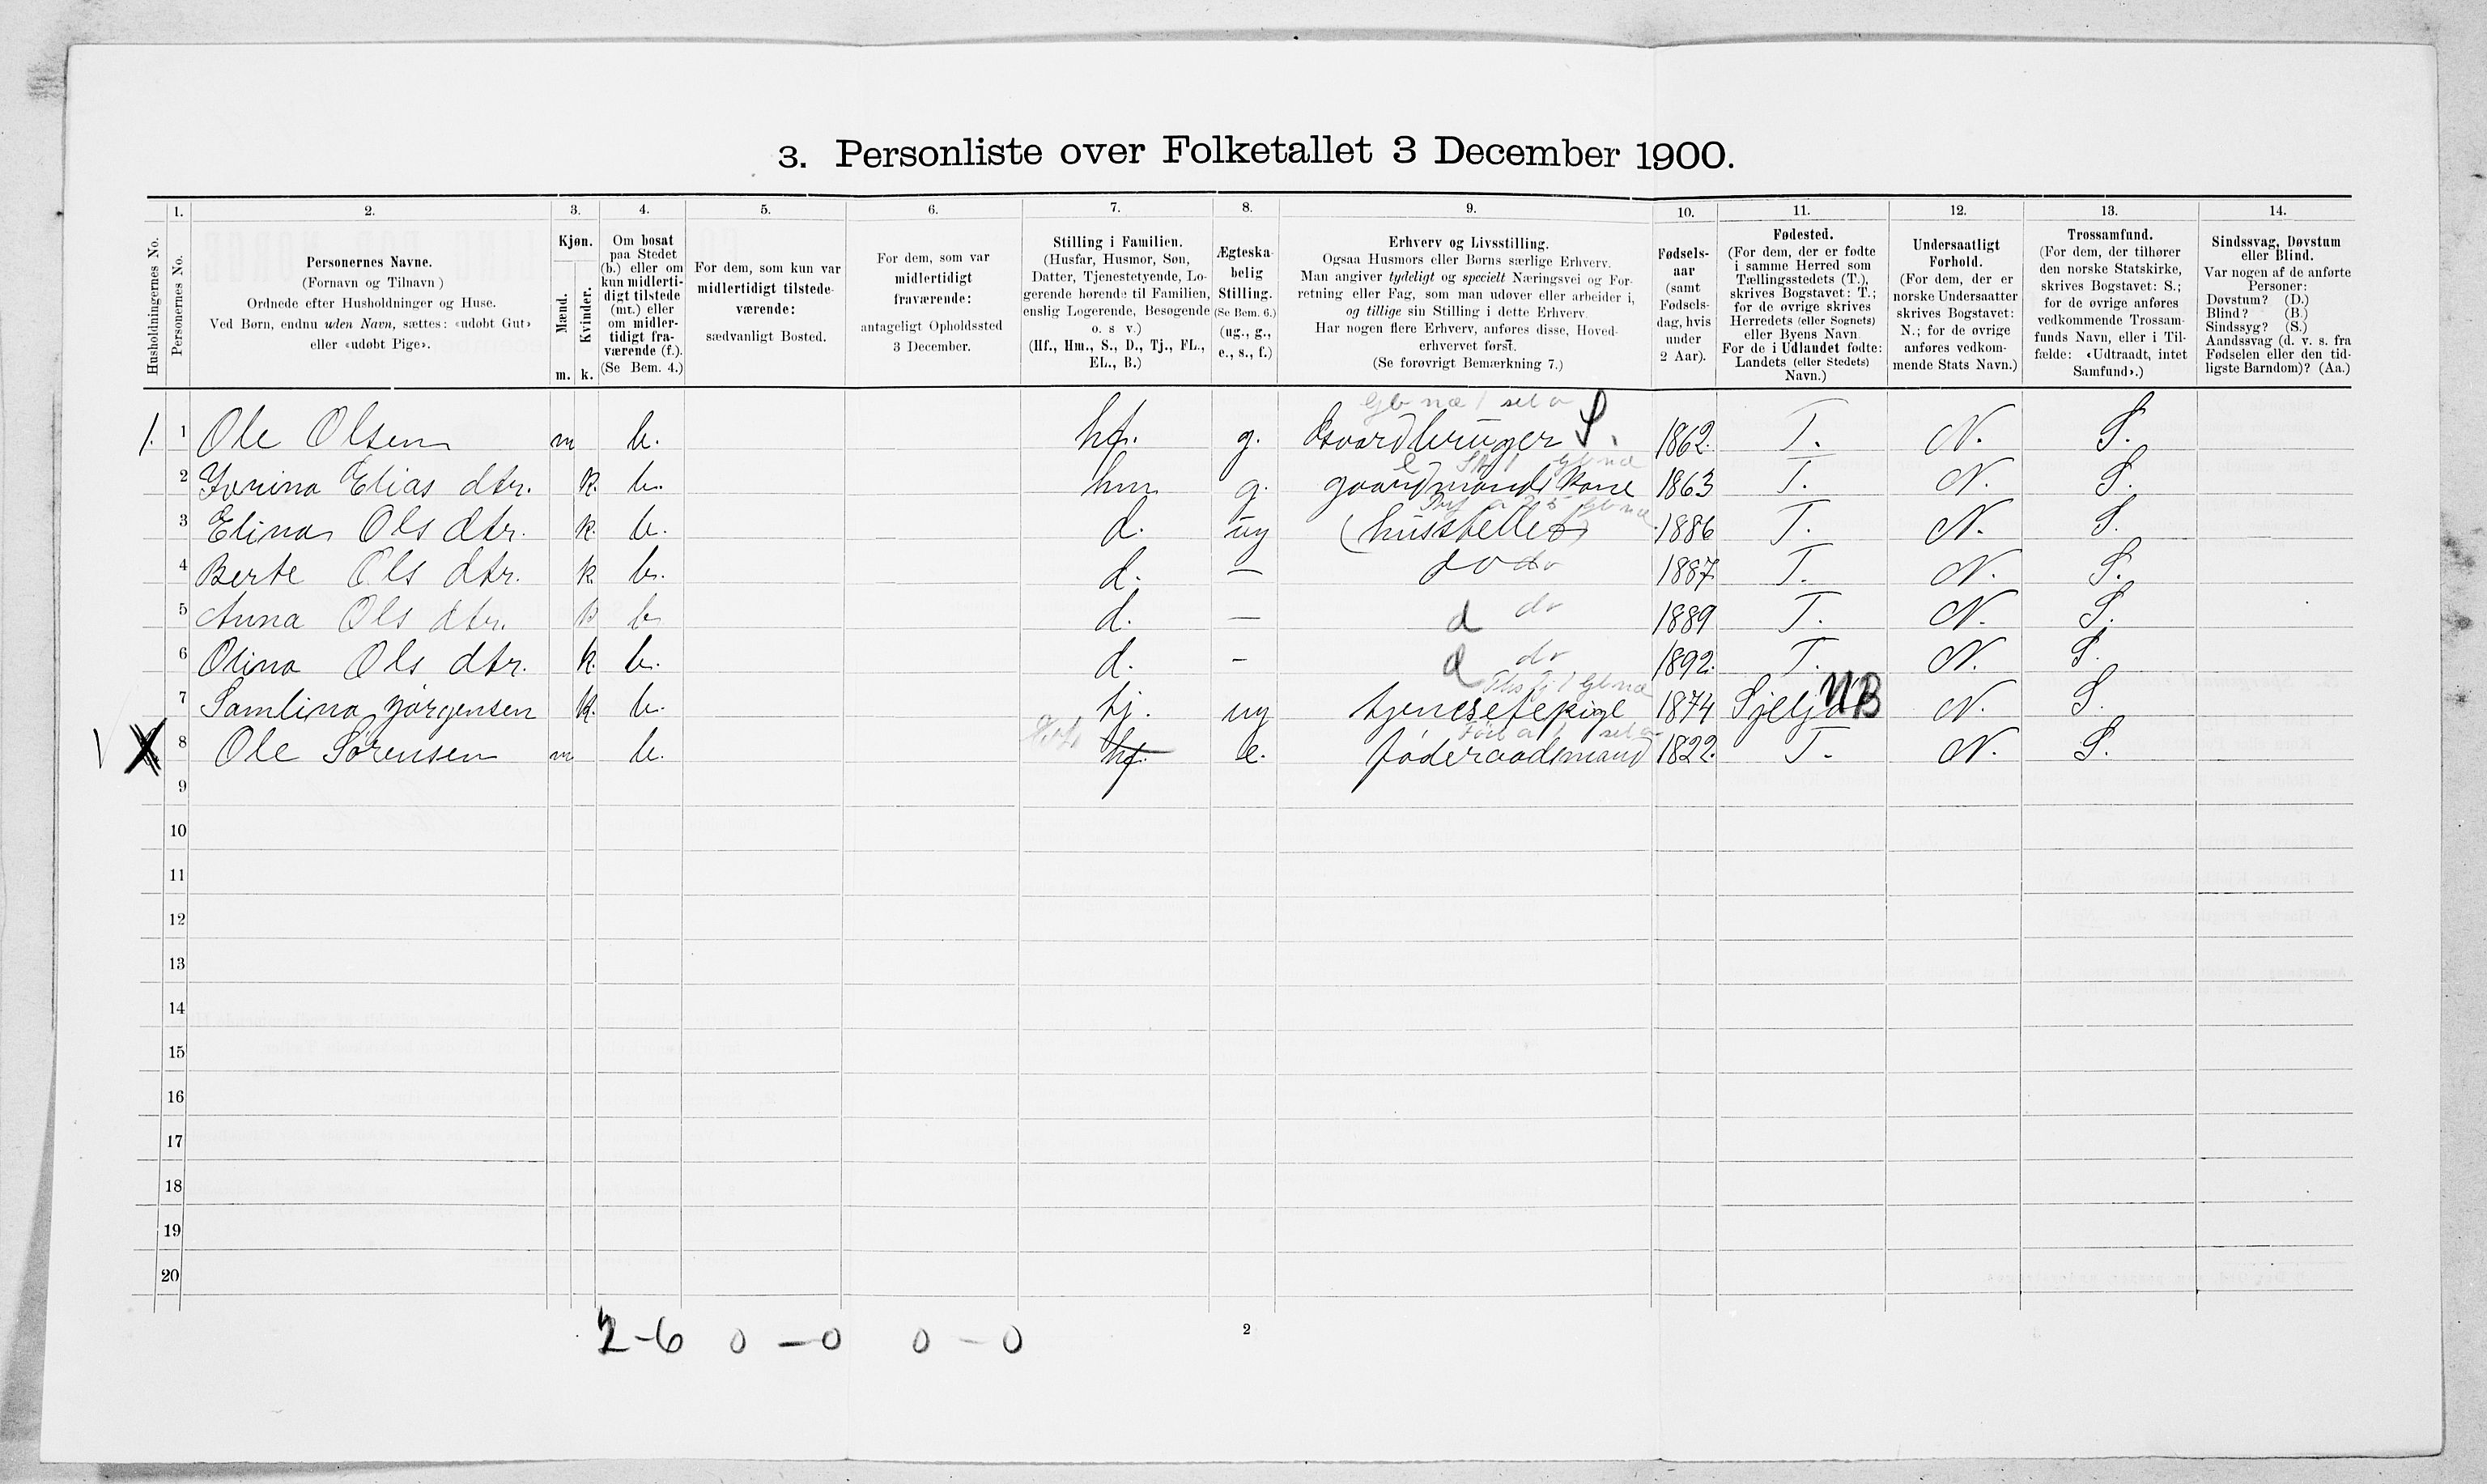 3. Personliste over Folketallet 3 December 1900.
Husholdningernes No.
1. Personernes No.
2. Personernes Navne.
(Fornavn og Tilnavn)
Ordnede efter Husholdninger og Huse.
Ved Børn, endnu uden Navn, sættes: «udøbt Gut»
eller «udøbt Pige».
3. Kjøn.
Mænd. m.
Kvinder. k.
4. Om bosat
paa Stedet
(b.) eller om
kun midlerti-
digt tilstede
(mt.) eller
om midler-
tidigt fra-
værende (f.).
(Se Bem. 4.)
5. For dem, som kun var
midlertidigt tilstede-
værende:
sædvanligt Bosted.
6. For dem, som var
midlertidigt
fraværende:
antageligt Opholdssted
3 December.
7. Stilling i Familien.
(Husfar, Husmor, Søn,
Datter, Tjenestetyende, Lo-
gerende hørende til Familien,
enslig Logerende, Besøgende
o. s. v.)
(Hf., Hm., S., D., Tj., FL.,
EL., B.)
8. Ægteska-
belig
Stilling.
(Se Bem. 6.)
(ug., g.,
e., s., f.)
9. Erhverv og Livsstilling.
Ogsaa Husmors eller Børns særlige Erhverv.
Man angiver tydeligt og specielt Næringsvei og For-
retning eller Fag, som man udøver eller arbeider i,
og tillige sin Stilling i dette Erhverv.
Har nogen flere Erhverv, anføres disse, Hoved-
erhvervet først.
(Se forøvrigt Bemærkning 7.)
10. Fødsels-
aar
(samt
Fødsels-
dag, hvis
under
2 Aar).
11. Fødested.
(For dem, der er fødte
i samme Herred som
Tællingsstedets (T.),
skrives Bogstavet: T.;
for de øvrige skrives
Herredets (eller Sognets)
eller Byens Navn.
For de i Udlandet fødte:
Landets (eller Stedets)
Navn.)
12. Undersaatligt
Forhold.
(For dem, der er
norske Undersaatter
skrives Bogstavet:
N.; for de øvrige
anføres vedkom-
mende Stats Navn.)
13. Trossamfund.
(For dem, der tilhører
den norske Statskirke,
skrives Bogstavet: S.;
for de øvrige anføres
vedkommende Trossam-
funds Navn, eller i Til-
fælde: «Udtraadt, intet
Samfund».)
14. Sindssvag, Døvstum
eller Blind.
Var nogen af de anførte
Personer:
Døvstum? (D.)
Blind? (B.)
Sindssyg? (S.)
Aandssvag (d. v. s. fra
Fødselen eller den tid-
ligste Barndom)? (Aa.)
1. 1 Ole Olsen m b. hf. g. S. 1862. T. N. S.
2 Elias dtr. k. b. hm g. gaardmands kone 1863 T. N. S.
3 Elina Ols dtr. k. b. d. ug (husstelle) 1886 T. N. S.
4 Berte Ols dtr. k. b. d. — do do 1887 T. N. S.
5 Anna Ols dtr. k b d. — d do 1889 T. N. S.
6 Olina Ols dtr. k. b. d. - d do 1892. T. N. S.
7 Samlina Jørgensen k. b. tj. ug tjenestepige 1874 NB N. S.
8 Ole Sørensen m b. hf. e. føderaadsmand 1822. T. N. S.
9
10
11
12
13
14
15
16
17
18
19
20
2-6 0 - 0 0 - 0
2